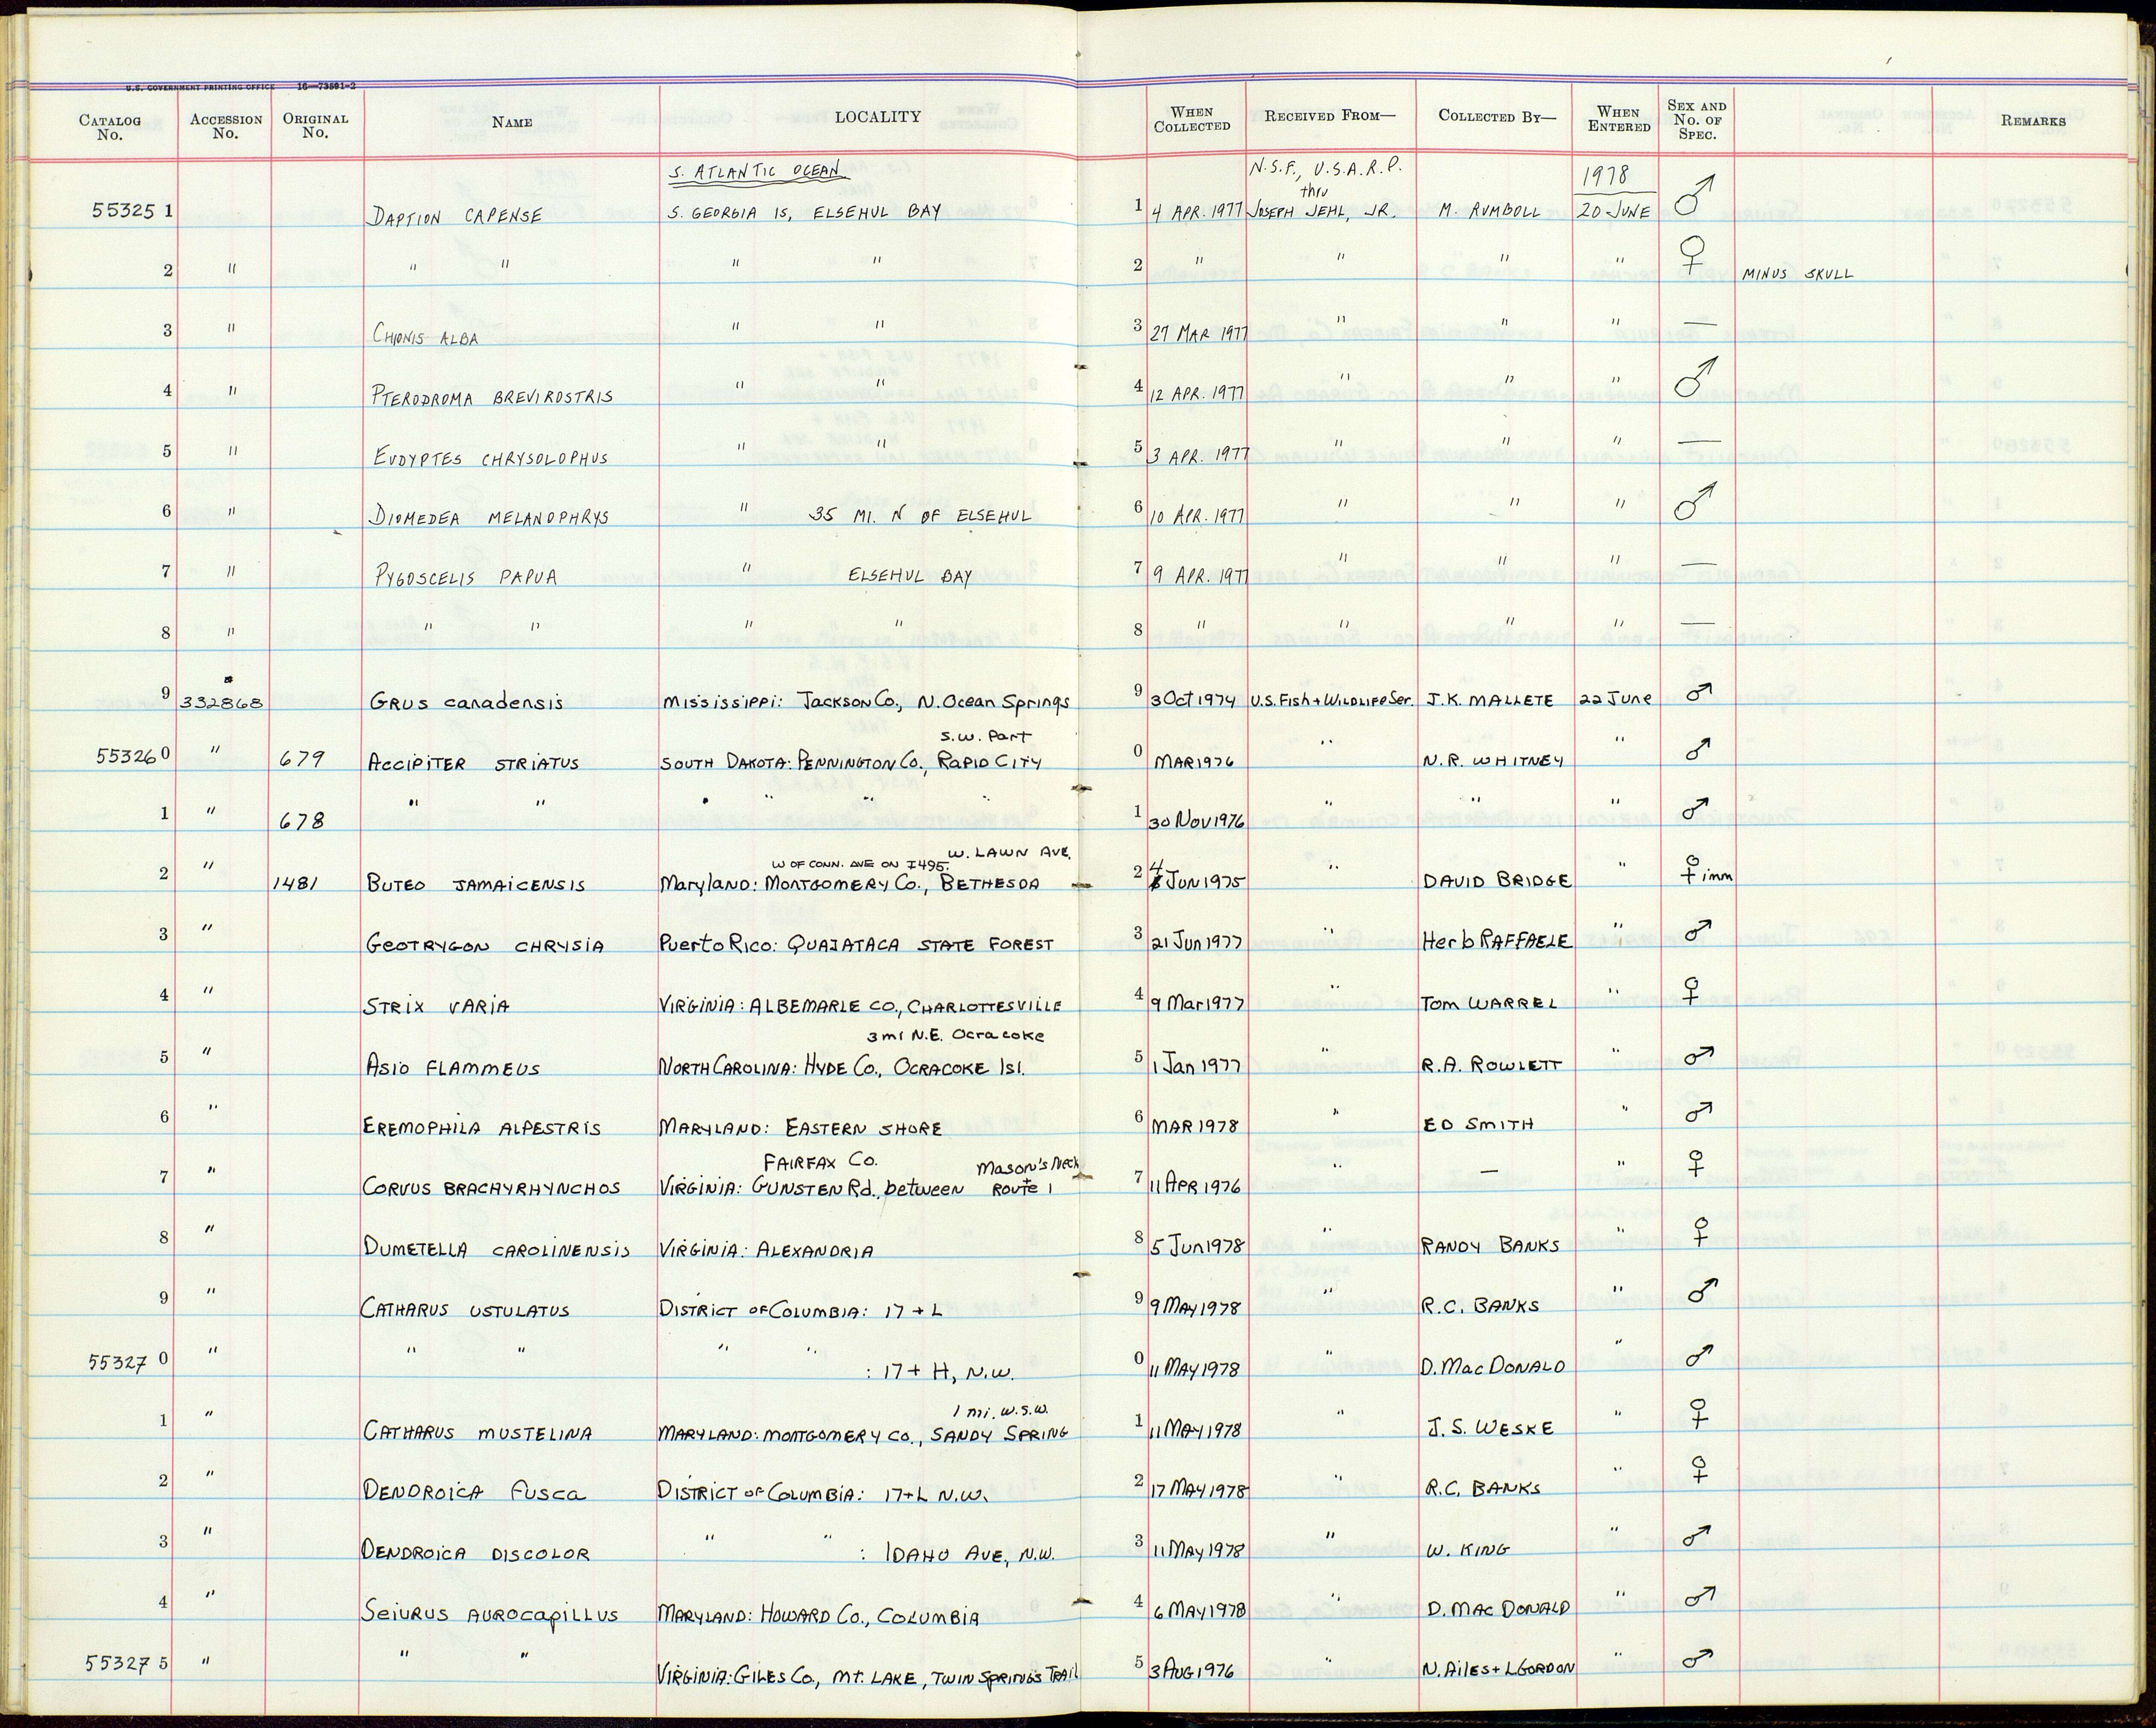 U.S. GOVERNMENT PRINTING OFFICE 16—73591-2
CATALOG No. ACCESSION No. ORIGINAL No. NAME LOCALITY WHEN COLLECTED RECEIVED FROM— COLLECTED BY— WHEN ENTERED SEX AND No. OF SPEC. REMARKS
S. ATLANTIC OCEAN N.S.F., U.S.A.R.P. 1978
thru
55325 1 DAPTION CAPENSE S. GEORGIA IS, ELSEHUL BAY 1 4 APR. 1977 JOSEPH JEHL, JR. M. RUMBOLL 20 JUNE ♂
2 " " " " " 2 " " " " ♀ MINUS SKULL
3 " CHIONIS ALBA " " 3 27 MAR 1977 " " " —
4 " PTERODROMA BREVIROSTRIS " " 4 12 APR. 1977 " " " ♂
5 " EUDYPTES CHRYSOLOPHUS " " 5 3 APR. 1977 " " " —
6 " DIOMEDEA MELANOPHRYS " 35 MI. N OF ELSEHUL 6 10 APR. 1977 " " " ♂
7 " PYGOSCELIS PAPUA " ELSEHUL BAY 7 9 APR. 1977 " " " —
8 " " " " " 8 " " " " —
9 332868 GRUS canadensis Mississippi: JACKSON Co., N. Ocean Springs 9 3 Oct 1974 U.S. Fish + WILDLIFE Ser. J.K. MALLETE 22 June ♂
S.W. Part
55326 0 " 679 ACCIPITER STRIATUS SOUTH DAKOTA: PENNINGTON Co., RAPID CITY 0 MAR 1976 " N.R. WHITNEY " ♂
1 " 678 " " " " " " 1 30 NOV 1976 " " " ♂
W OF CONN. AVE ON I495. W. LAWN AVE.
2 " 1481 BUTEO JAMAICENSIS Maryland: MONTGOMERY Co., BETHESDA 2 4 JUN 1975 " DAVID BRIDGE " ♀ imm
3 " GEOTRYGON CHRYSIA Puerto Rico: QUAJATACA STATE FOREST 3 21 Jun 1977 " Herb RAFFAELE " ♂
4 " STRIX VARIA VIRGINIA: ALBEMARLE CO., CHARLOTTESVILLE 4 9 Mar 1977 " Tom WARREL " ♀
3 mi N.E. Ocracoke
5 " ASIO FLAMMEUS NORTH CAROLINA: HYDE Co., OCRACOKE Isl. 5 1 Jan 1977 " R.A. ROWLETT " ♂
6 " EREMOPHILA ALPESTRIS MARYLAND: EASTERN SHORE 6 MAR 1978 " ED SMITH " ♂
FAIRFAX Co. Mason's Neck
7 " CORVUS BRACHYRHYNCHOS VIRGINIA: GUNSTEN Rd., between + ROUTE 1 7 11 APR 1976 " — " ♀
8 " DUMETELLA CAROLINENSIS VIRGINIA: ALEXANDRIA 8 5 Jun 1978 " RANDY BANKS " ♀
9 " CATHARUS USTULATUS DISTRICT OF COLUMBIA: 17 + L 9 9 MAY 1978 " R.C. BANKS " ♂
55327 0 " " " " " : 17 + H, N.W. 0 11 MAY 1978 " D. MacDONALD " ♂
1 mi. W.S.W.
1 " CATHARUS MUSTELINA MARYLAND: MONTGOMERY CO., SANDY SPRING 1 11 MAY 1978 " J.S. WESKE " ♀
2 " DENDROICA FUSCA DISTRICT OF COLUMBIA: 17+L N.W. 2 17 MAY 1978 " R.C. BANKS " ♀
3 " DENDROICA DISCOLOR " " : IDAHO AVE, N.W. 3 11 MAY 1978 " W. KING " ♂
4 " SEIURUS AUROCAPILLUS MARYLAND: HOWARD Co., COLUMBIA 4 6 MAY 1978 " D. MACDONALD " ♂
55327 5 " " " VIRGINIA: GILES Co., MT. LAKE, TWIN SPRINGS TRAIL 5 3 AUG 1976 " N. AILES + L GORDON " ♂